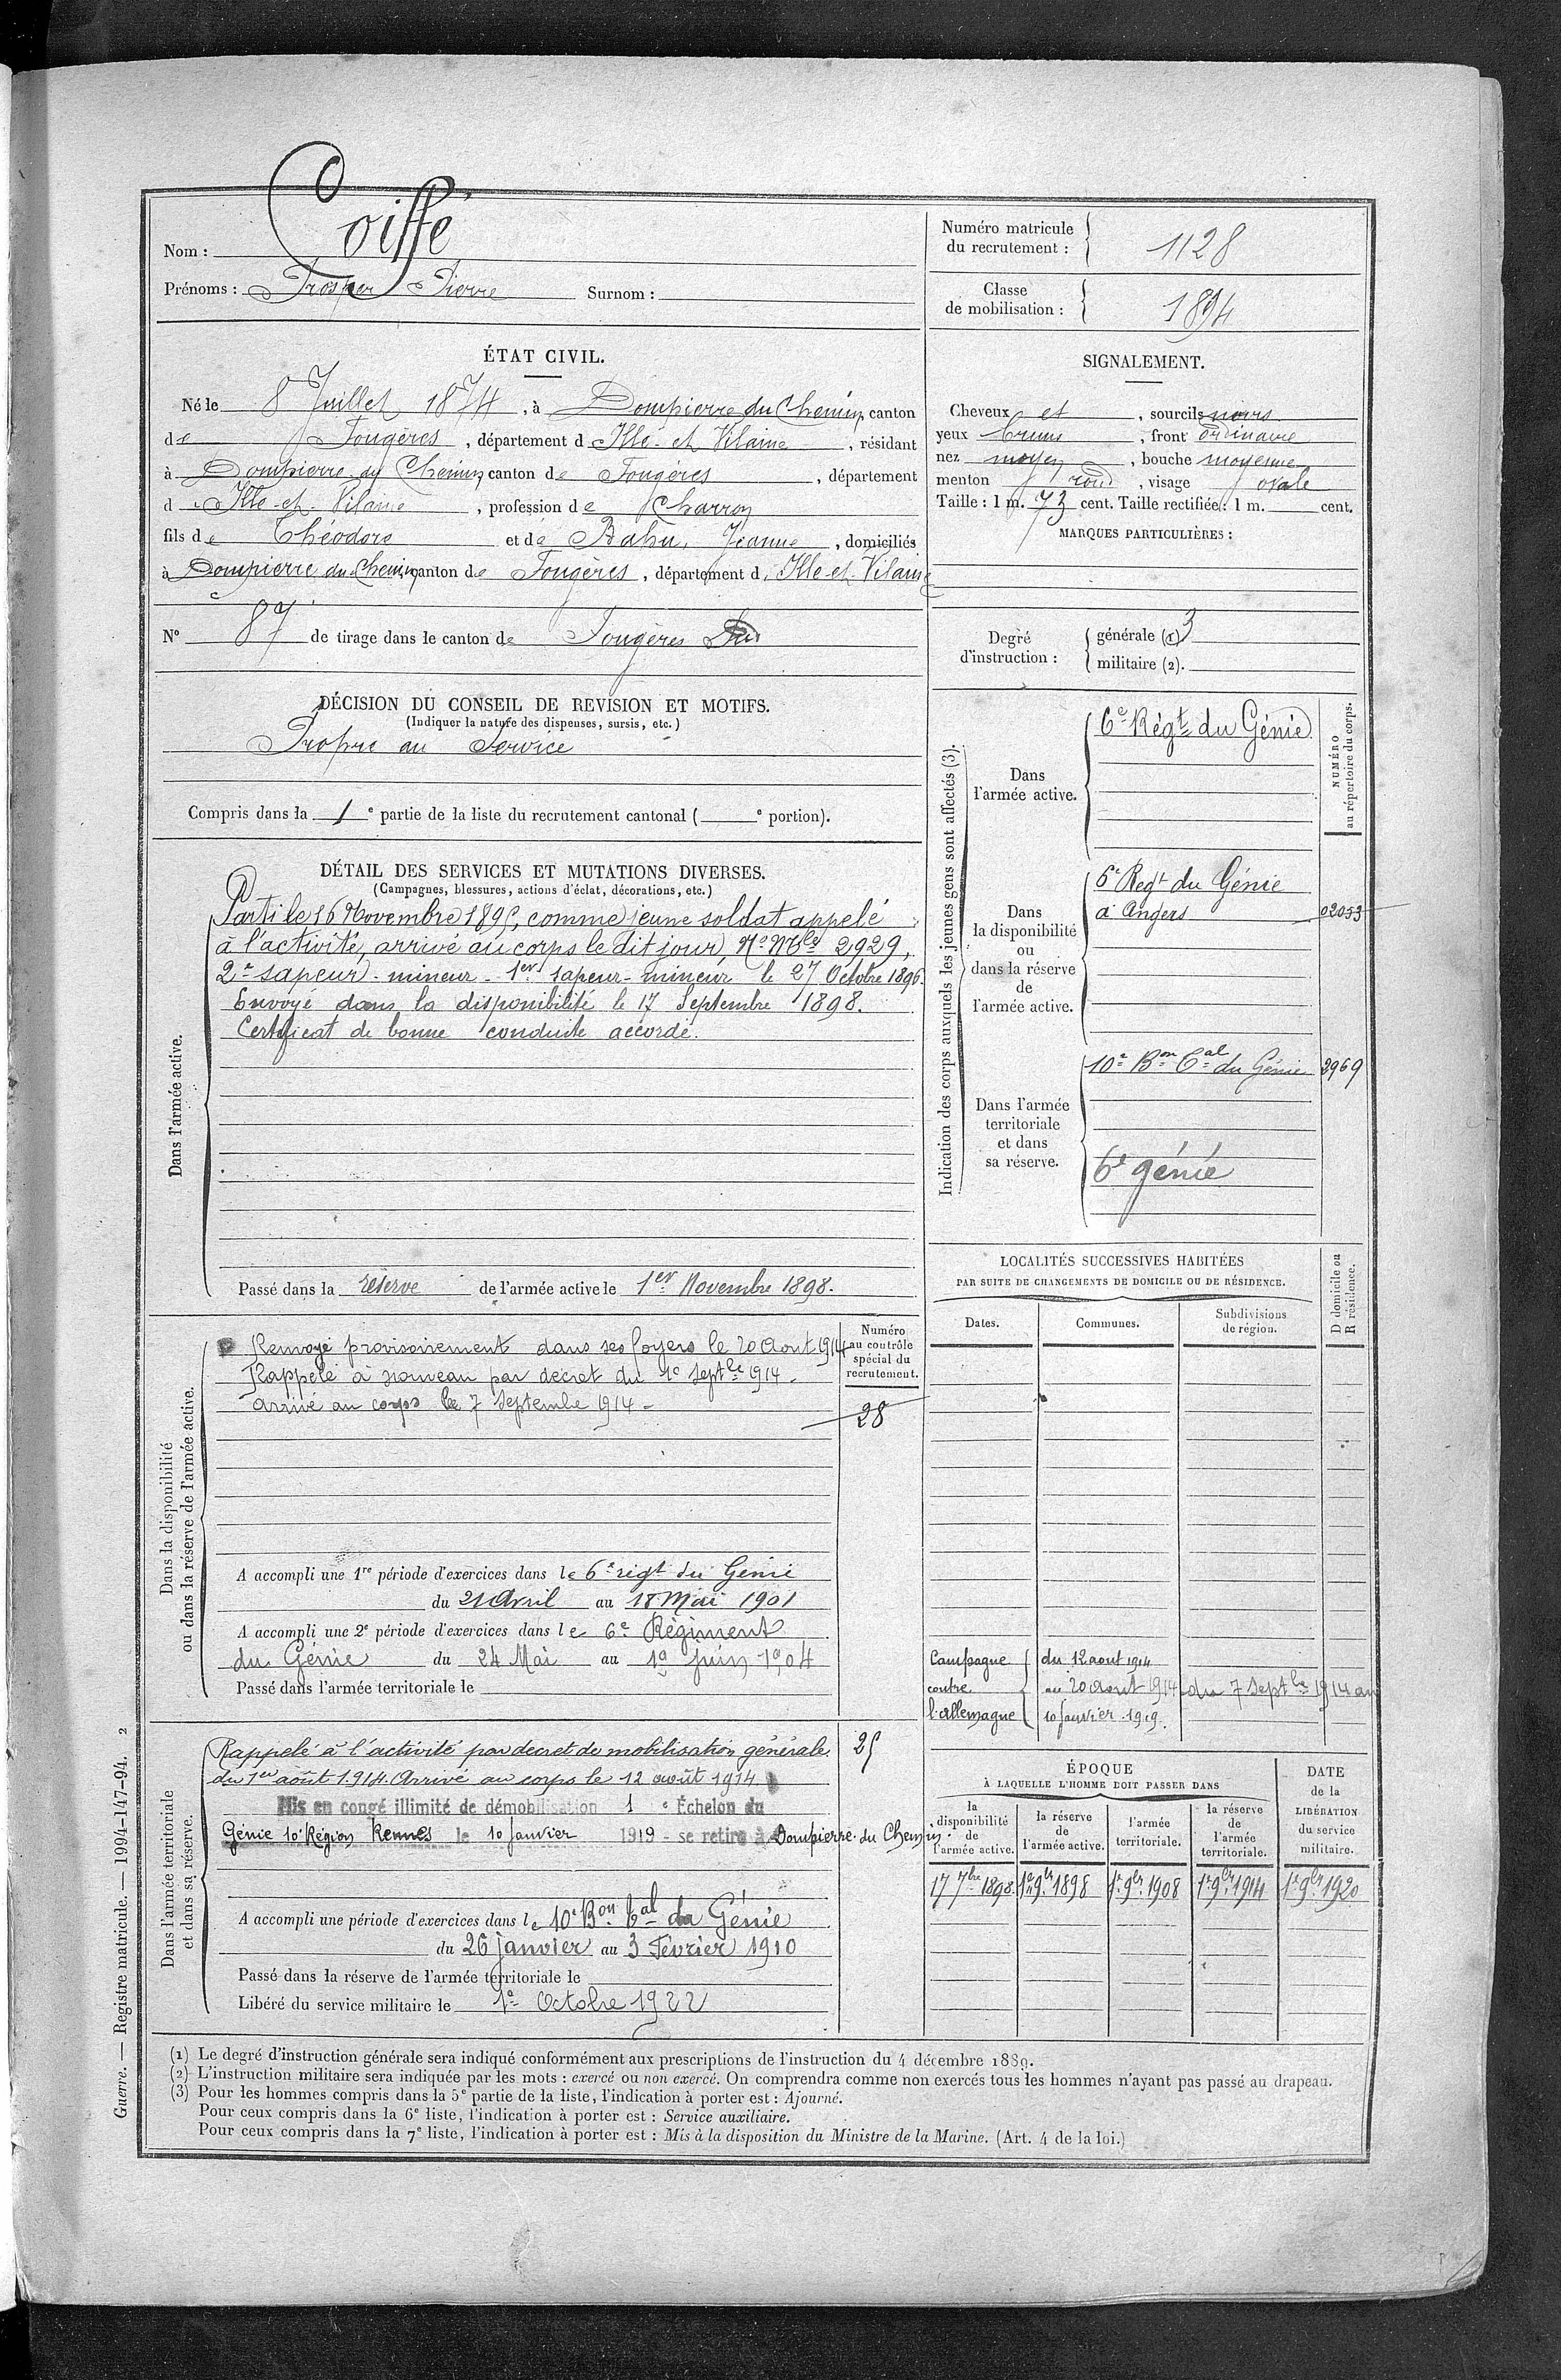 Nom : Coiffé
Prénoms : Prosper Pierre Surnom :
Numéro matricule du recrutement : 1128
Classe de mobilisation : 1894
ÉTAT CIVIL.
Né le 8 Juillet 1874, à Dompierre du Chemin, canton
de Fougères, département d Ille-et-Vilaine, résidant
à Dompierre du Chemin, canton de Fougères, département
d Ille-et-Vilaine, profession de Charron
fils de Théodore et de Bahu, Jeanne, domiciliés
à Dompierre du Chemin, canton de Fougères, département d Ille-et-Vilaine
N° 87 de tirage dans le canton de Fougères Sud
SIGNALEMENT.
Cheveux et, sourcils noirs
yeux bruns, front ordinaire
nez moyen, bouche moyenne
menton rond, visage ovale
Taille : 1 m. 73 cent. Taille rectifiée : 1 m. cent.
MARQUES PARTICULIÈRES :
Degré d'instruction : générale (1) 3
militaire (2).
DÉCISION DU CONSEIL DE REVISION ET MOTIFS.
(Indiquer la nature des dispenses, sursis, etc.)
Propre au Service
Compris dans la 1e partie de la liste du recrutement cantonal ( e portion).
DÉTAIL DES SERVICES ET MUTATIONS DIVERSES.
(Campagnes, blessures, actions d'éclat, décorations, etc.)
Dans l'armée active.
Parti le 16 Novembre 1895, comme jeune soldat appelé
à l'activité, arrivé au corps le dit jour, No Mle 2929,
2e sapeur-mineur - 1er sapeur-mineur le 27 Octobre 1896.
Envoyé dans la disponibilité le 17 Septembre 1898.
Certificat de bonne conduite accordé.
Passé dans la réserve de l'armée active le 1er Novembre 1898.
Indication des corps auxquels les jeunes gens sont affectés (3).
NUMÉRO au répertoire du corps.
Dans l'armée active.
6e Régt du Génie
Dans la disponibilité ou dans la réserve de l'armée active.
6e Regt du Génie
à Angers 02053
Dans l'armée territoriale et dans sa réserve.
10e Bon Cal du Génie 2969
6e génie
Dans la disponibilité ou dans la réserve de l'armée active.
Numéro au contrôle spécial du recrutement.
Renvoyé provisoirement dans ses foyers le 20 Aout 1914
Rappelé à nouveau par décret du 1e Septbre 1914 -
arrivé au corps le 7 Septembre 1914 -
28
A accompli une 1re période d'exercices dans le 6e régt du Génie
du 21 Avril au 18 Mai 1901
A accompli une 2e période d'exercices dans le 6e Régiment
du Génie du 24 Mai au 19 Juin 1904
Passé dans l'armée territoriale le
LOCALITÉS SUCCESSIVES HABITÉES
PAR SUITE DE CHANGEMENTS DE DOMICILE OU DE RÉSIDENCE.
D domicile ou R résidence.
Dates. Communes. Subdivisions de région.
Campagne du 12 aout 1914
contre au 20 Aout 1914 du 7 Septbre 1914 au
l'Allemagne 10 Janvier 1919.
Dans l'armée territoriale et dans sa réserve.
Rappelé à l'activité par décret de mobilisation générale
du 1er août 1914. Arrivé au corps le 12 août 1914
Mis en congé illimité de démobilisation 1 e Échelon du
Génie 10e Région Rennes le 10 Janvier 1919 - se retire à Dompierre du Chemin.
25
A accompli une période d'exercices dans le 10e Bon Cal du Génie
du 26 janvier au 3 Février 1910
Passé dans la réserve de l'armée territoriale le
Libéré du service militaire le 1er Octobre 1922
ÉPOQUE
À LAQUELLE L'HOMME DOIT PASSER DANS
la disponibilité de l'armée active.
la réserve de l'armée active.
l'armée territoriale.
la réserve de l'armée territoriale.
DATE de la LIBÉRATION du service militaire.
17 7bre 1898 1er 9bre 1898 1er 9bre 1908 1er 9bre 1914 1er 9bre 1920
(1) Le degré d'instruction générale sera indiqué conformément aux prescriptions de l'instruction du 4 décembre 1889.
(2) L'instruction militaire sera indiquée par les mots : exercé ou non exercé. On comprendra comme non exercés tous les hommes n'ayant pas passé au drapeau.
(3) Pour les hommes compris dans la 5e partie de la liste, l'indication à porter est : Ajourné.
Pour ceux compris dans la 6e liste, l'indication à porter est : Service auxiliaire.
Pour ceux compris dans la 7e liste, l'indication à porter est : Mis à la disposition du Ministre de la Marine. (Art. 4 de la loi.)
Guerre. — Registre matricule. — 1994-147-94. 2